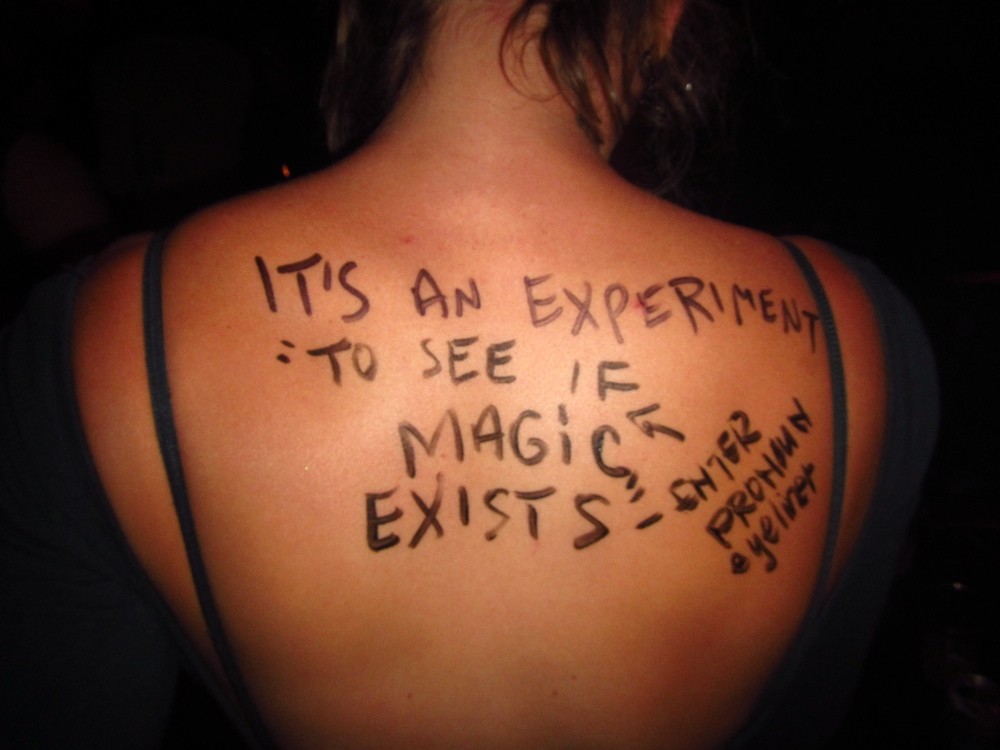 IT'S AN EXPERIMENT
:TO SEE IF
MAGIC
EXISTS
ENTER
PRONOUN
eyeliner